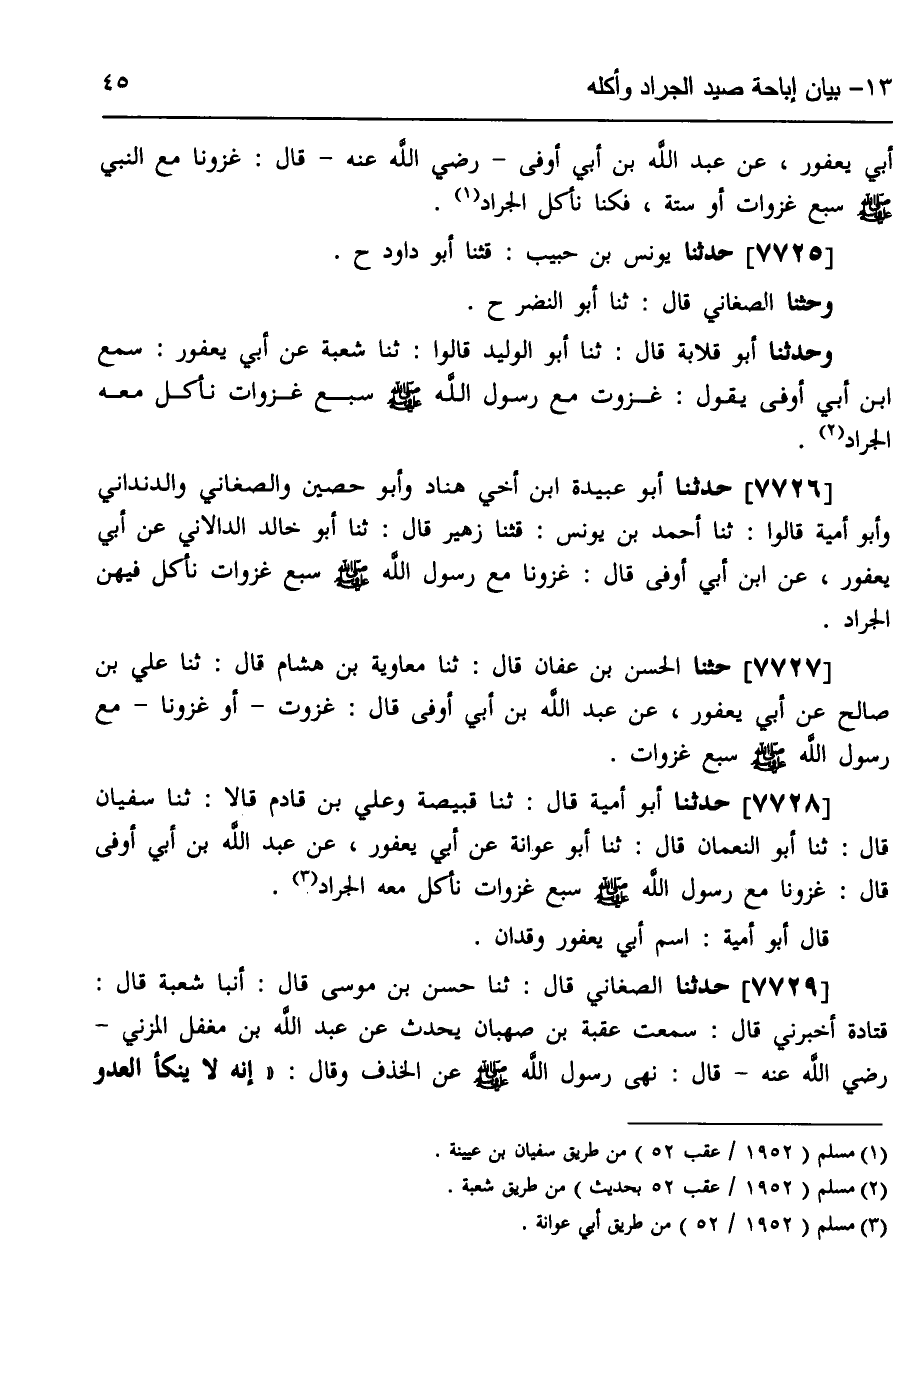 ١٣- بيان إباحة صيد الجراد وأكله ٤٥
أبي يعفور ، عن عبد اللَّه بن أبي أوفى - رضي اللَّه عنه - قال : غزونا مع النبي
ﷺ سبع غزوات أو ستة ، فكنا نأكل الجراد(١) .
[٧٧٢٥] حدثنا يونس بن حبيب : قثنا أبو داود ح .
وحثنا الصغاني قال : ثنا أبو النضر ح .
وحدثنا أبو قلابة قال : ثنا أبو الوليد قالوا : ثنا شعبة عن أبي يعفور : سمع
ابن أبي أوفى يقول : غـزوت مع رسول اللَّه ﷺ سبـع غـزوات نأكـل معـه
الجراد(٢) .
[٧٧٢٦] حدثنا أبو عبيدة ابن أخي هناد وأبو حصين والصغاني والدنداني
وأبو أمية قالوا : ثنا أحمد بن يونس : قثنا زهير قال : ثنا أبو خالد الدالاني عن أبي
يعفور ، عن ابن أبي أوفى قال : غزونا مع رسول اللَّه ﷺ سبع غزوات نأكل فيهن
الجراد .
[٧٧٢٧] حثنا الحسن بن عفان قال : ثنا معاوية بن هشام قال : ثنا علي بن
صالح عن أبي يعفور ، عن عبد اللَّه بن أبي أوفى قال : غزوت - أو غزونا - مع
رسول اللَّه ﷺ سبع غزوات .
[٧٧٢٨] حدثنا أبو أمية قال : ثنا قبيصة وعلي بن قادم قالا : ثنا سفيان
قال : ثنا أبو النعمان قال : ثنا أبو عوانة عن أبي يعفور ، عن عبد اللَّه بن أبي أوفى
قال : غزونا مع رسول اللَّه ﷺ سبع غزوات نأكل معه الجراد(٣) .
قال أبو أمية : اسم أبي يعفور وقدان .
[٧٧٢٩] حدثنا الصغاني قال : ثنا حسن بن موسى قال : أنبا شعبة قال :
قتادة أخبرني قال : سمعت عقبة بن صهبان يحدث عن عبد اللَّه بن مغفل المزني -
رضي اللَّه عنه - قال : نهى رسول اللَّه ﷺ عن الخذف وقال : « إنه لا ينكأ العدو
(١) مسلم ( ١٩٥٢ / عقب ٥٢ ) من طريق سفيان بن عيينة .
(٢) مسلم ( ١٩٥٢ / عقب ٥٢ بحديث ) من طريق شعبة .
(٣) مسلم ( ١٩٥٢ / ٥٢ ) من طريق أبي عوانة .